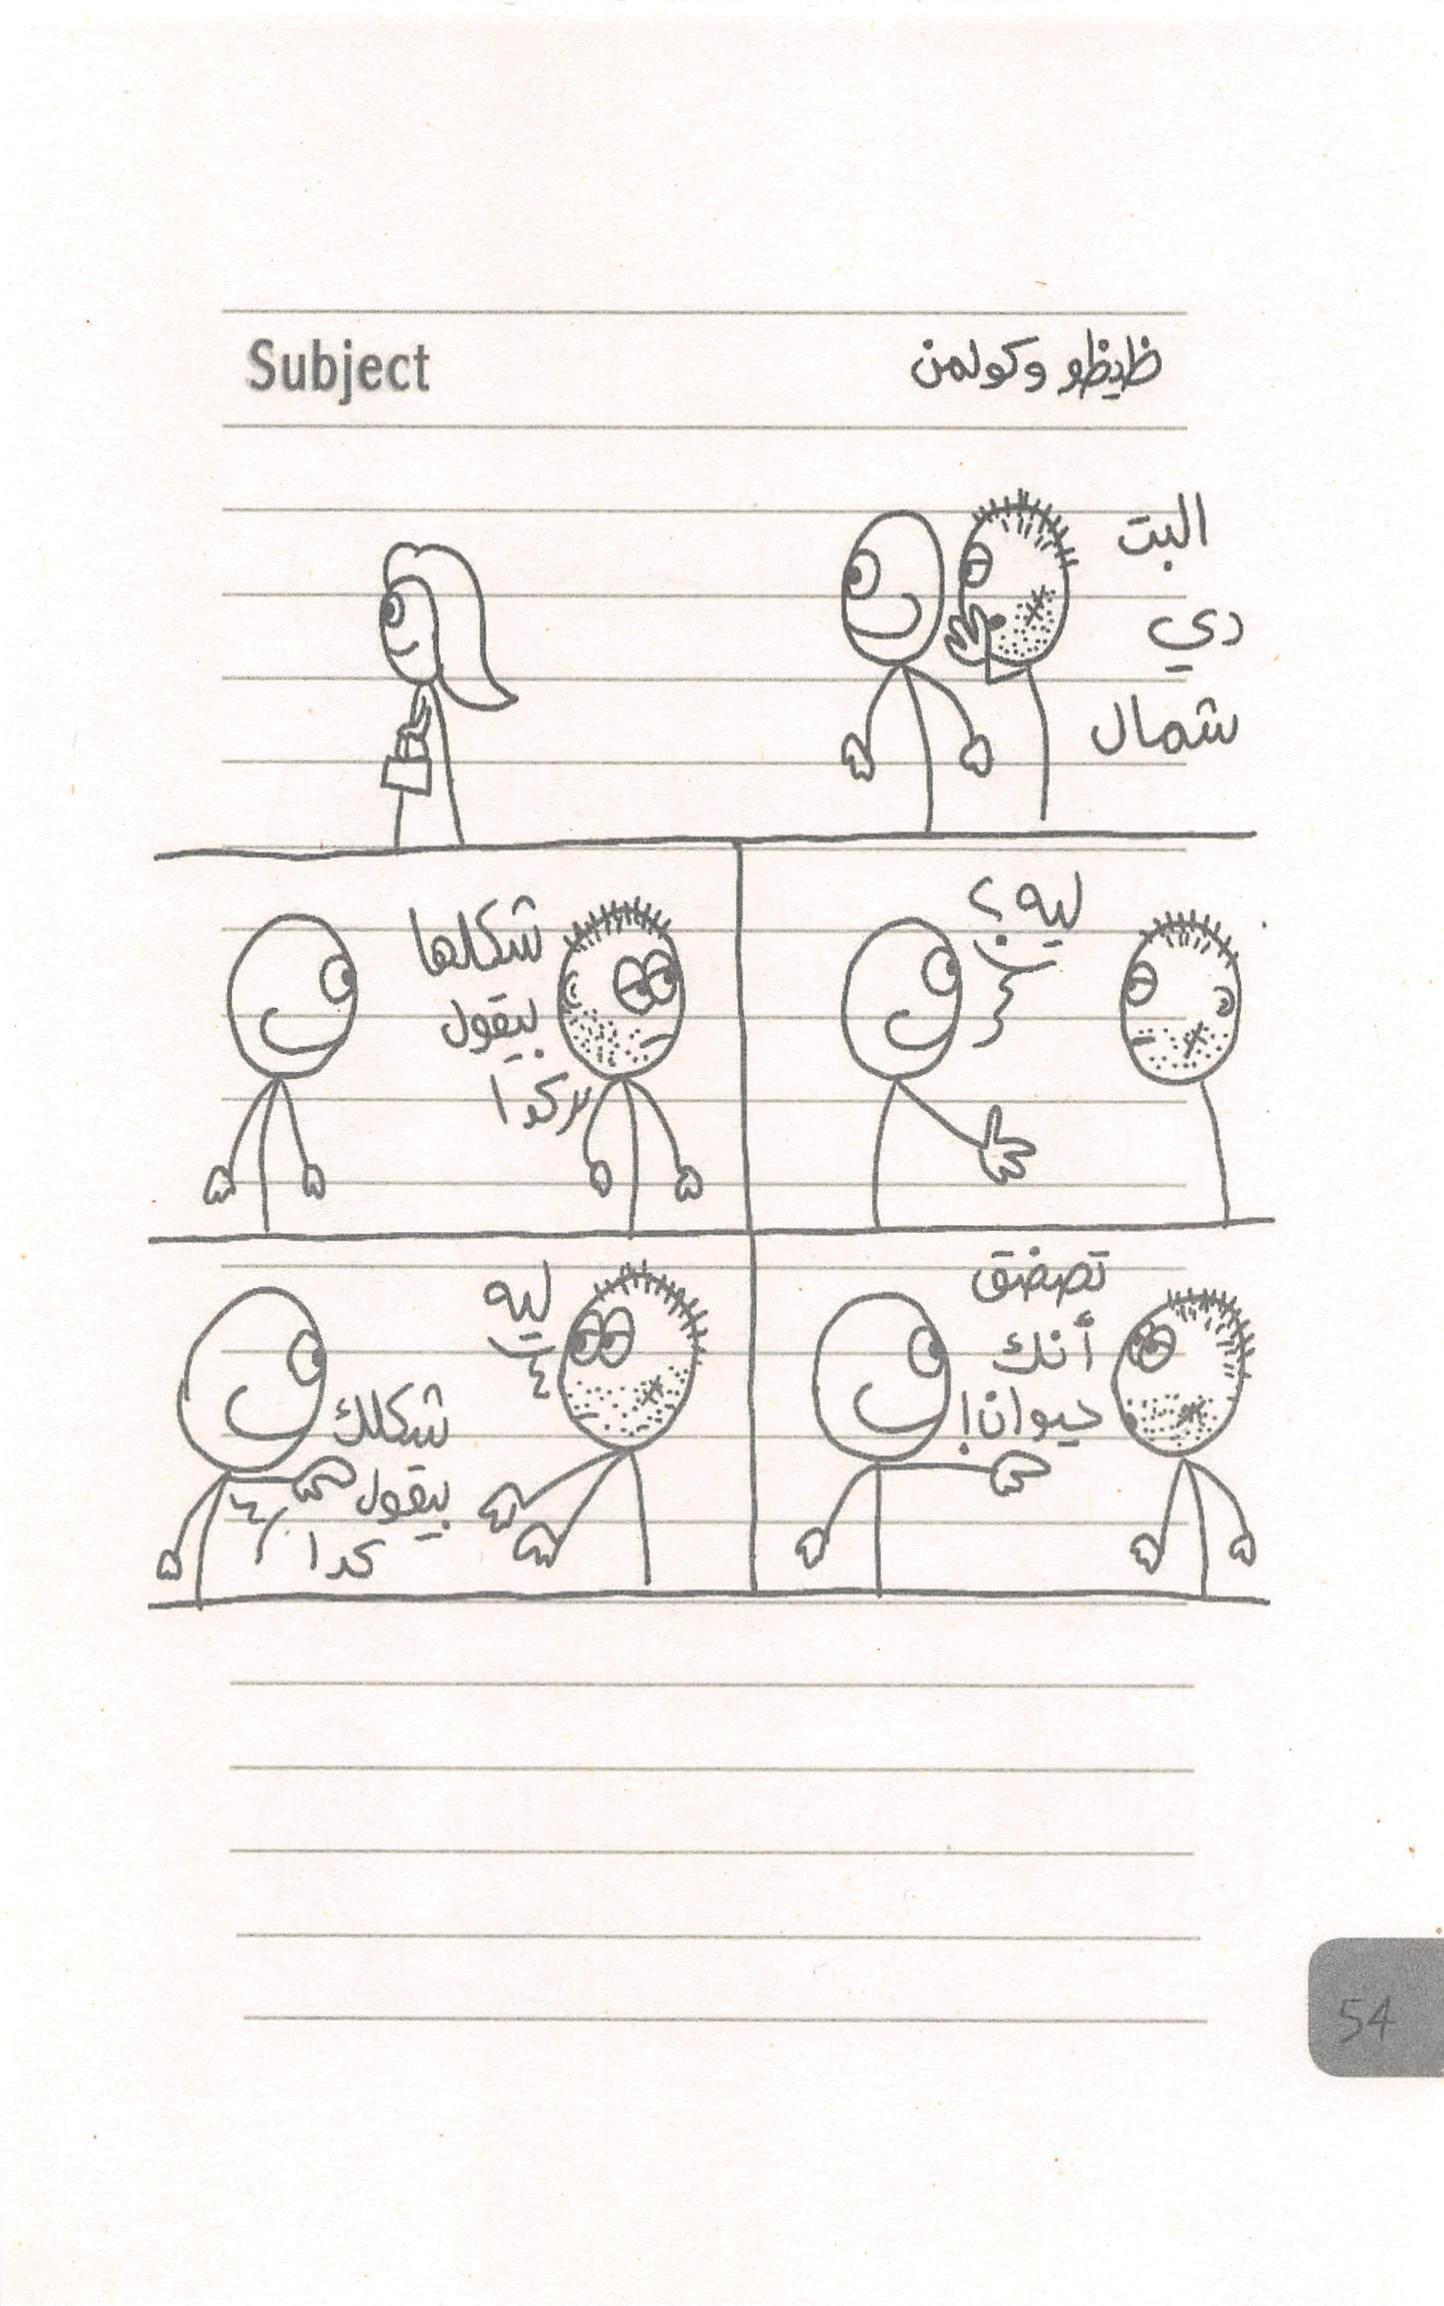 Subject
ظيظو وكولمن
البت
دي
شمال
ليه؟
شكلها
بيقول
كدا
تصضق
أنك
حيوان!
ليه
شكلك
بيقول
كدا
54